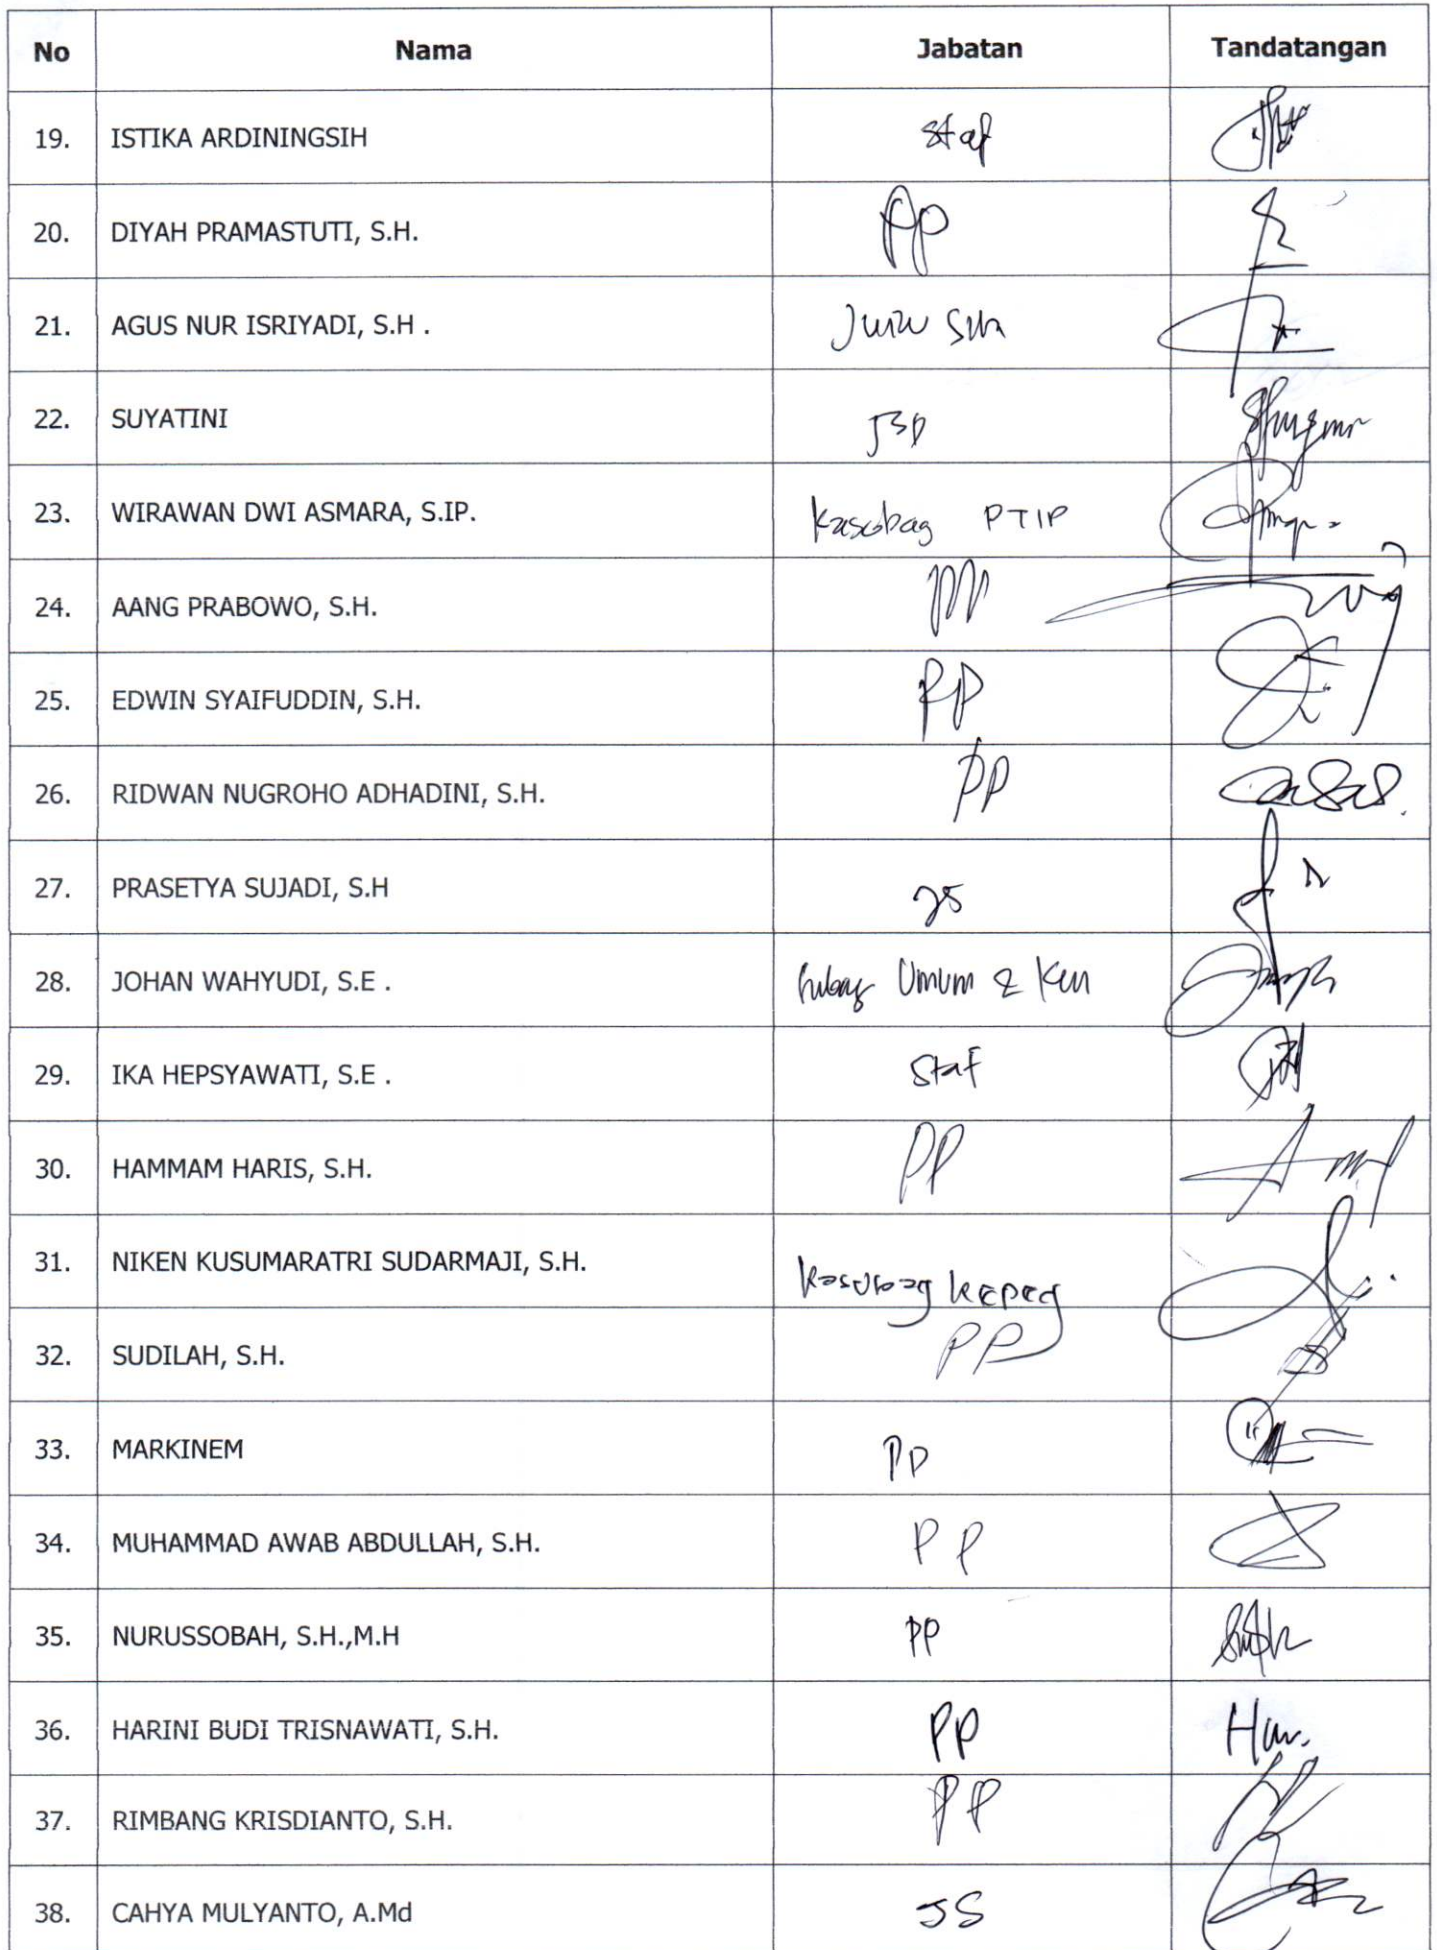 No Nama Jabatan Tandatangan
19. ISTIKA ARDININGSIH staf
20. DIYAH PRAMASTUTI, S.H. PP
21. AGUS NUR ISRIYADI, S.H .
22. SUYATINI
23. WIRAWAN DWI ASMARA, S.IP. Kasubag PTIP
24. AANG PRABOWO, S.H.
25. EDWIN SYAIFUDDIN, S.H. PP
26. RIDWAN NUGROHO ADHADINI, S.H. PP
27. PRASETYA SUJADI, S.H JS
28. JOHAN WAHYUDI, S.E . Umum & Keu
29. IKA HEPSYAWATI, S.E . Staf
30. HAMMAM HARIS, S.H. PP
31. NIKEN KUSUMARATRI SUDARMAJI, S.H. Kasubag kepeg
32. SUDILAH, S.H. PP
33. MARKINEM PP
34. MUHAMMAD AWAB ABDULLAH, S.H. PP
35. NURUSSOBAH, S.H.,M.H PP
36. HARINI BUDI TRISNAWATI, S.H. PP
37. RIMBANG KRISDIANTO, S.H. PP
38. CAHYA MULYANTO, A.Md JS